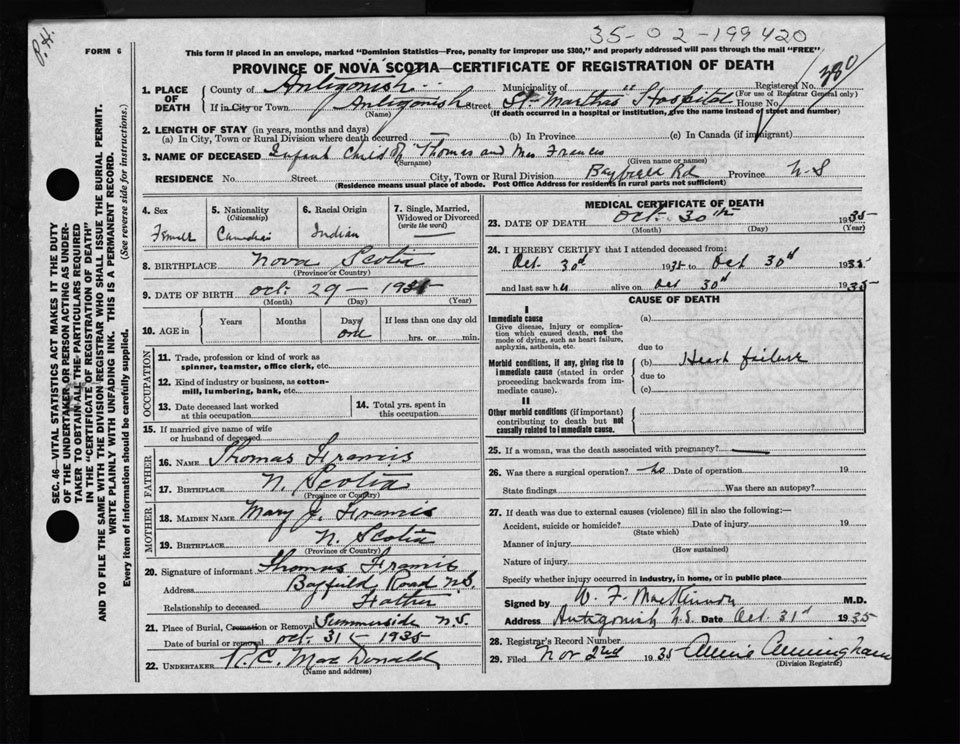 35-02-199420
P.H.
FORM 6
This form if placed in an envelope, marked "Dominion Statistics—Free, penalty for improper use $300," and properly addressed will pass through the mail "FREE"
PROVINCE OF NOVA SCOTIA—CERTIFICATE OF REGISTRATION OF DEATH
1. PLACE OF DEATH
County of Antigonish Municipality of " Registered No. 380
(For use of Registrar General only)
If in City or Town Antigonish Street St Marthas Hospital House No.
(Name) (If death occurred in a hospital or institution, give the name instead of street and number)
2. LENGTH OF STAY (in years, months and days)
(a) In City, Town or Rural Division where death occurred (b) In Province (c) In Canada (if immigrant)
3. NAME OF DECEASED Infant Child of Thomas and Mrs Frances
(Surname) (Given name or names)
RESIDENCE No. Street City, Town or Rural Division Bayfield Rd Province N.S
(Residence means usual place of abode. Post Office Address for residents in rural parts not sufficient)
4. Sex
Female
5. Nationality (Citizenship)
Canadian
6. Racial Origin
Indian
7. Single, Married, Widowed or Divorced (write the word)
8. BIRTHPLACE Nova Scotia
(Province or Country)
9. DATE OF BIRTH Oct. 29 - 1935
(Month) (Day) (Year)
10. AGE in
Years Months Days If less than one day old
one hrs. or min.
OCCUPATION
11. Trade, profession or kind of work as spinner, teamster, office clerk, etc.
12. Kind of industry or business, as cotton-mill, lumbering, bank, etc.
13. Date deceased last worked at this occupation
14. Total yrs. spent in this occupation
15. If married give name of wife or husband of deceased
FATHER
16. NAME Thomas Francis
17. BIRTHPLACE N. Scotia
(Province or Country)
MOTHER
18. MAIDEN NAME Mary J. Francis
19. BIRTHPLACE N. Scotia
(Province or Country)
20. Signature of informant Thomas Francis
Address Bayfield Road N.S.
Relationship to deceased Father
21. Place of Burial, Cremation or Removal Summerside N.S.
Date of burial or removal Oct. 31 - 1935
22. UNDERTAKER R.C. MacDonald
(Name and address)
MEDICAL CERTIFICATE OF DEATH
23. DATE OF DEATH Oct. 30th 1935
(Month) (Day) (Year)
24. I HEREBY CERTIFY that I attended deceased from:
Oct. 30d 1935 to Oct 30d 1935
and last saw her alive on Oct 30d 1935
CAUSE OF DEATH
I
Immediate cause
Give disease, injury or complication which caused death, not the mode of dying, such as heart failure, asphyxia, asthenia, etc.
Morbid conditions, if any, giving rise to immediate cause (stated in order proceeding backwards from immediate cause).
II
Other morbid conditions (if important) contributing to death but not causally related to immediate cause.
(a)
due to
(b) Heart failure
due to
(c)
25. If a woman, was the death associated with pregnancy?
26. Was there a surgical operation? No Date of operation 19
State findings Was there an autopsy?
27. If death was due to external causes (violence) fill in also the following:—
Accident, suicide or homicide? Date of injury 19
(State which)
Manner of injury
(How sustained)
Nature of injury
Specify whether injury occurred in industry, in home, or in public place
Signed by W. F. MacKinnon M.D.
Address Antigonish N.S. Date Oct. 31st 1935
28. Registrar's Record Number
29. Filed Nov 2nd 1935 Annie Cunningham
(Division Registrar)
SEC. 46—VITAL STATISTICS ACT MAKES IT THE DUTY
OF THE UNDERTAKER OR PERSON ACTING AS UNDER-
TAKER TO OBTAIN ALL THE PARTICULARS REQUIRED
IN THE "CERTIFICATE OF REGISTRATION OF DEATH"
AND TO FILE THE SAME WITH THE DIVISION REGISTRAR WHO SHALL ISSUE THE BURIAL PERMIT.
WRITE PLAINLY WITH UNFADING INK. THIS IS A PERMANENT RECORD.
Every item of information should be carefully supplied. (See reverse side for instructions.)